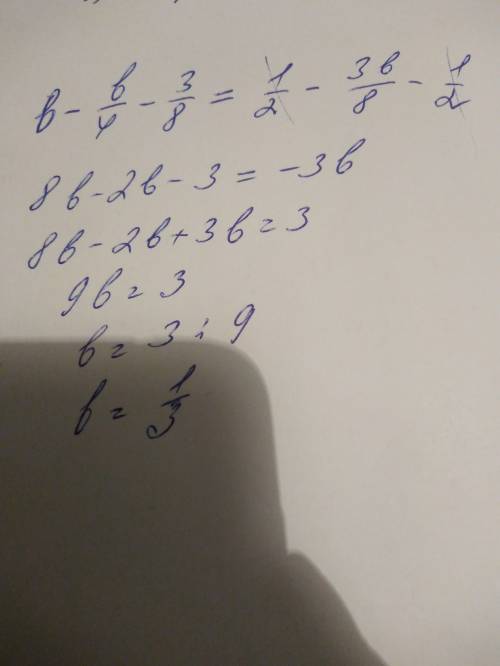 в - в/4 - 3/8 = 1/2 - 3в/8 - 1/2
8в - 2в - 3 = -3в
8в - 2в + 3в = 3
9в = 3
в = 3 : 9
в = 1/3